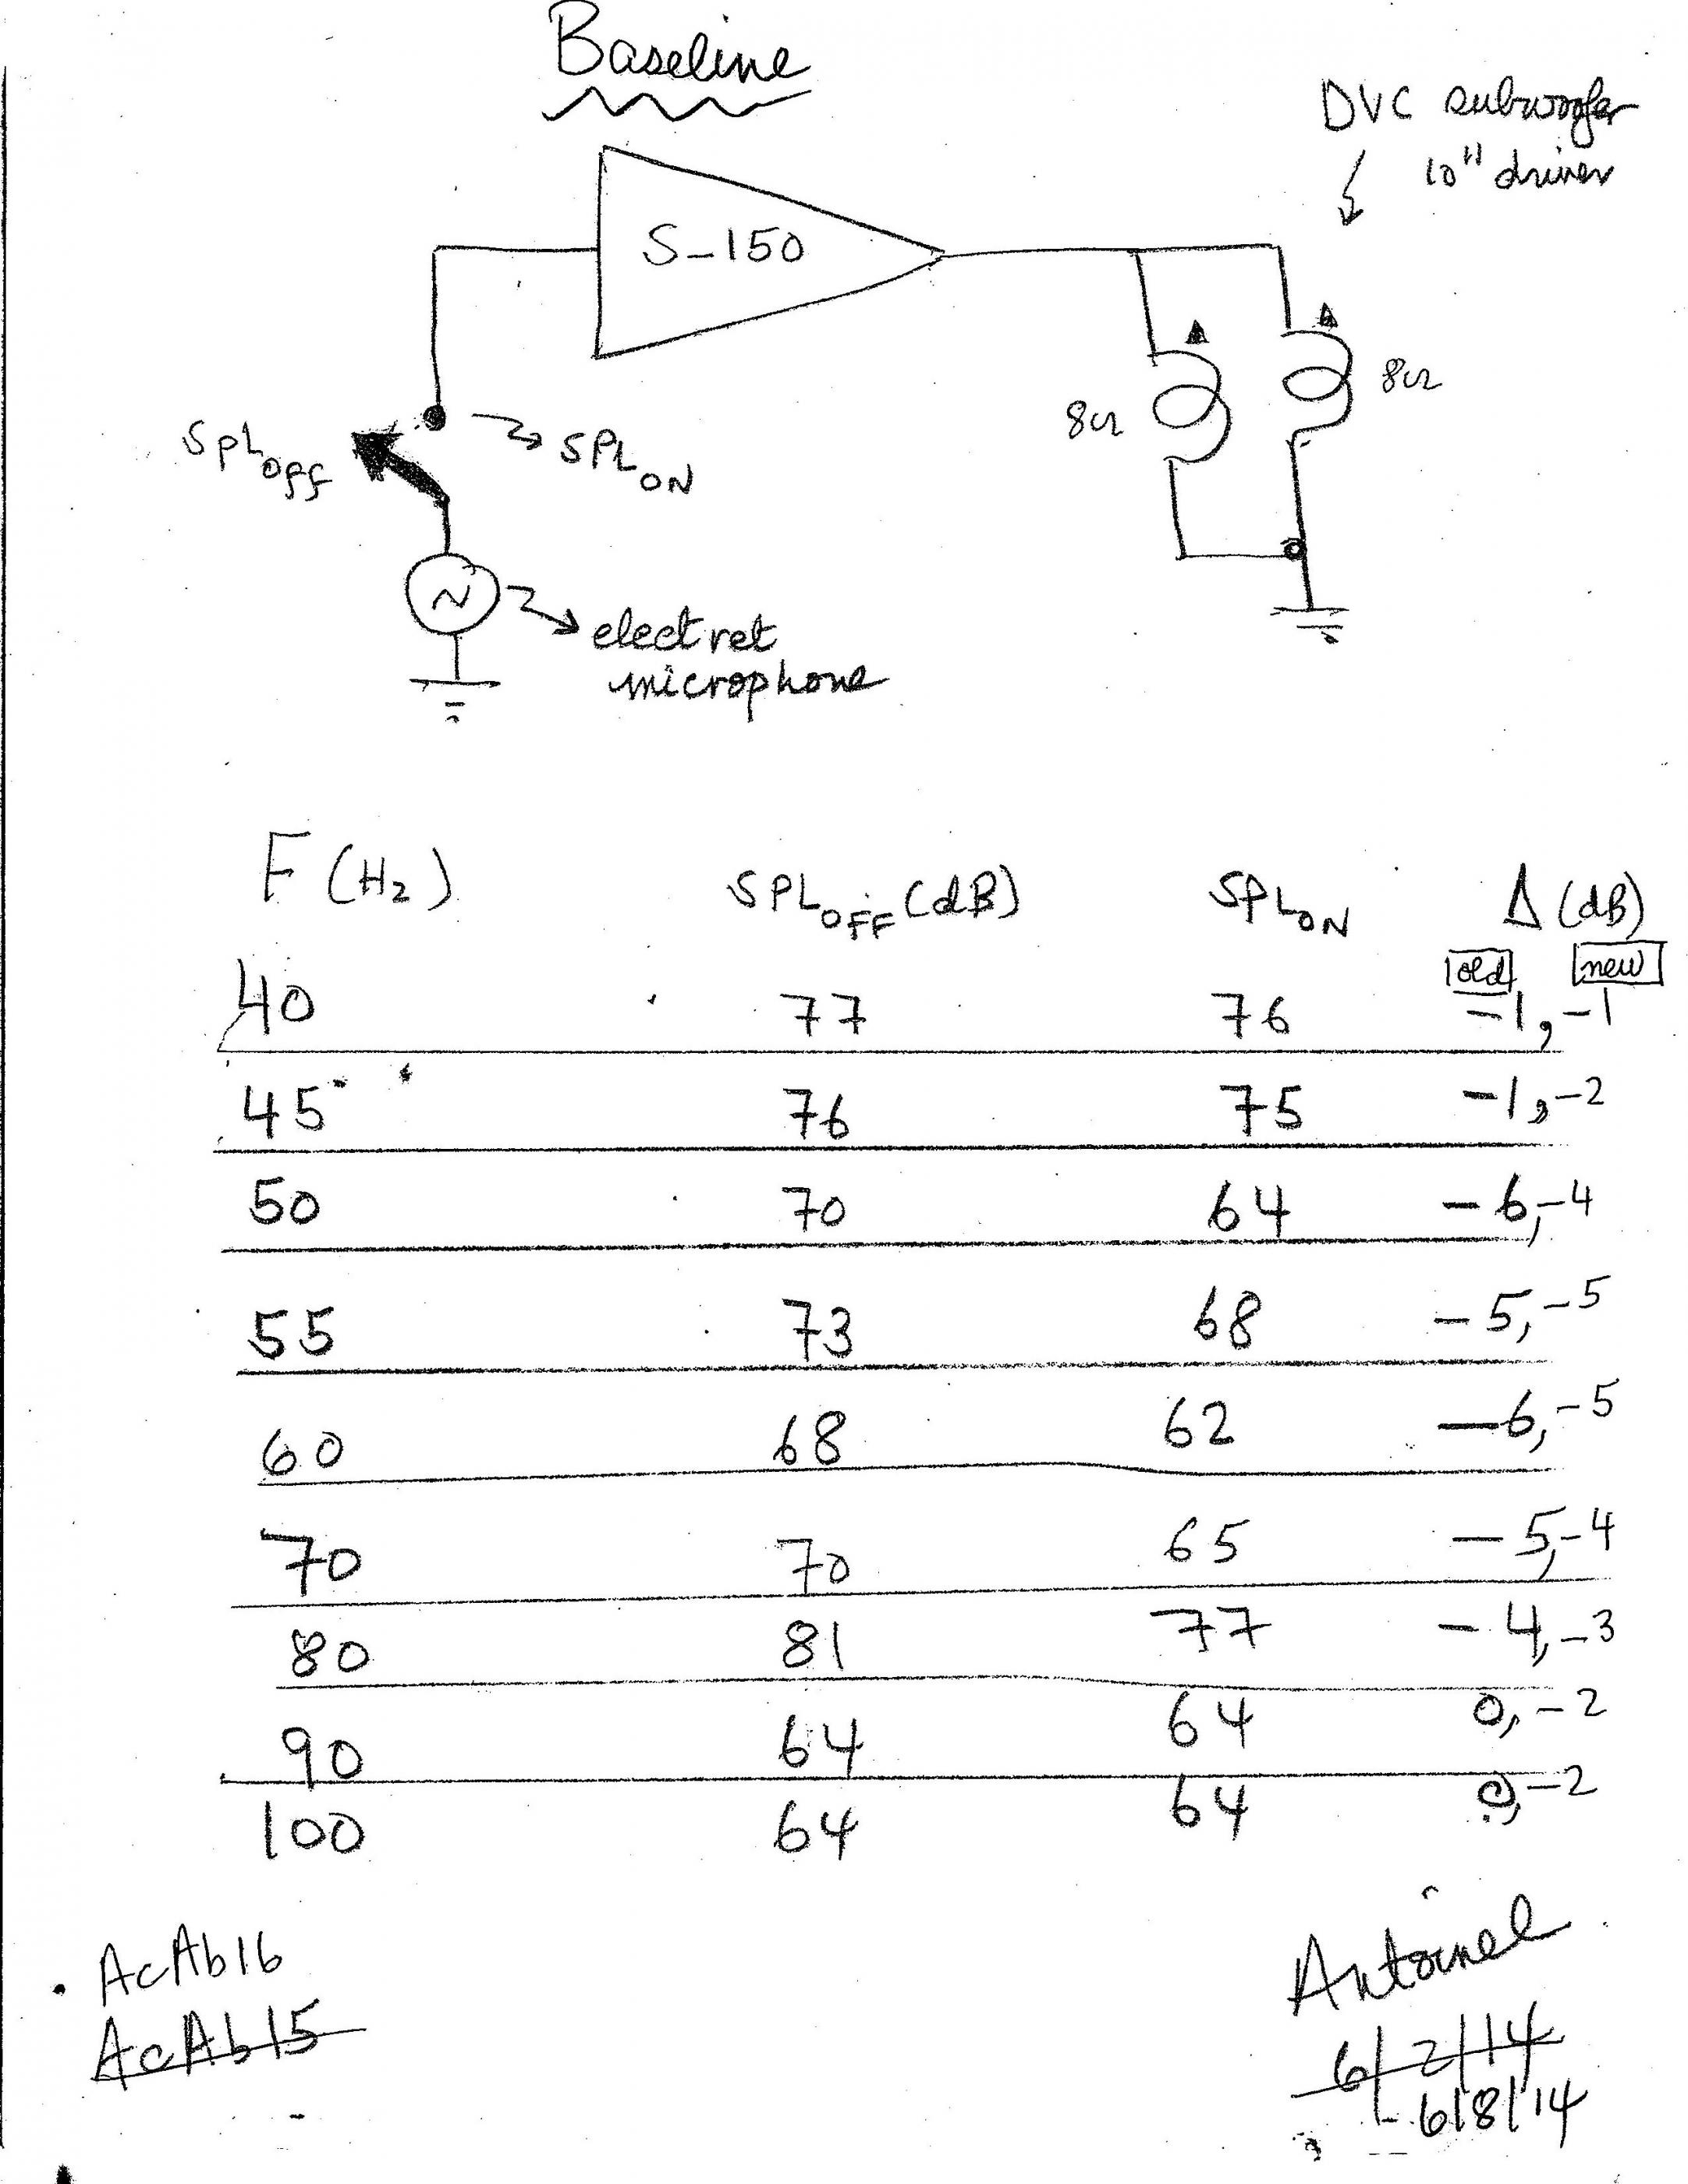 Baseline
DVC subwoofer
10" driver
S-150
8Ω
8Ω
SPL OFF
SPL ON
electret
microphone
F (Hz) SPL OFF (dB) SPL ON Δ (dB)
old new
40 77 76 -1, -1
45 76 75 -1, -2
50 70 64 -6, -4
55 73 68 -5, -5
60 68 62 -6, -5
70 70 65 -5, -4
80 81 77 -4, -3
90 64 64 0, -2
100 64 64 0, -2
AcAb16
AcAb15
Antoinel
6/2/14
6/8/14